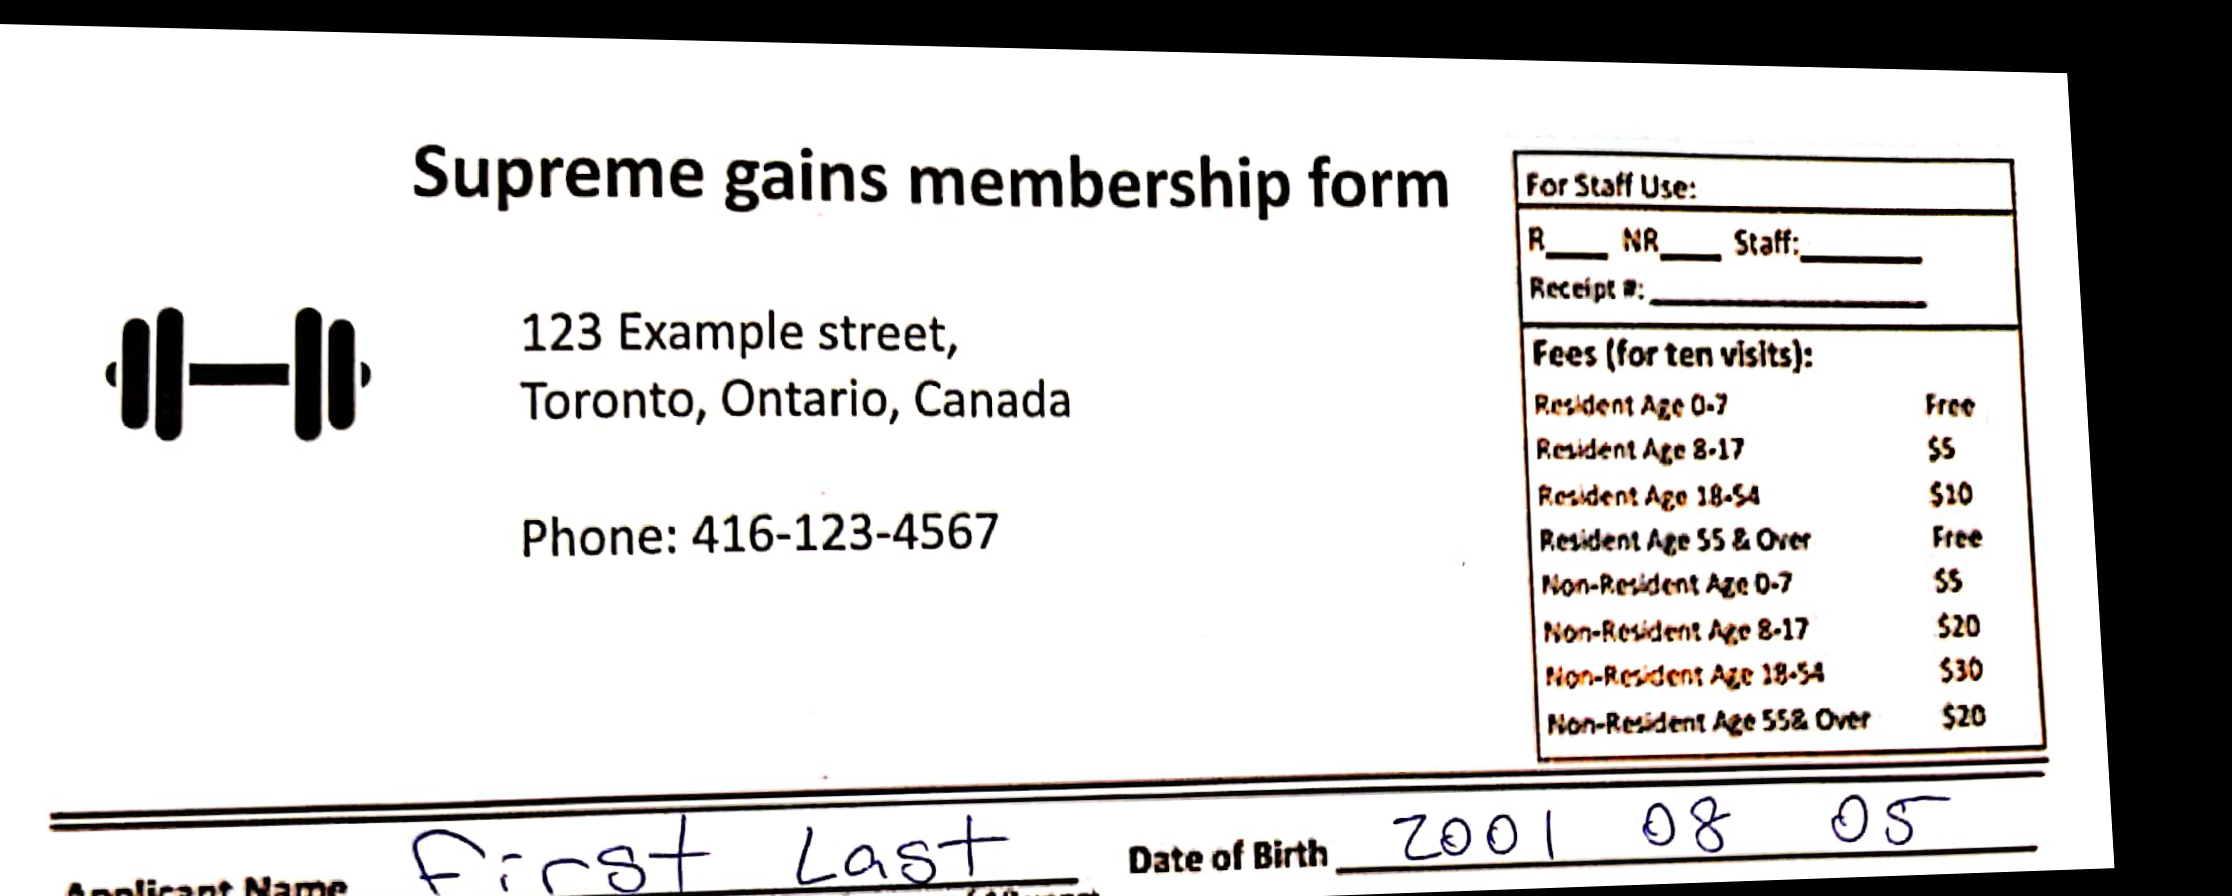 Supreme gains membership form
123 Example street,
Toronto, Ontario, Canada
Phone: 416-123-4567
For Staff Use:
R____ NR____ Staff:________
Receipt #:__________________
Fees (for ten visits):
Resident Age 0-7 Free
Resident Age 8-17 $5
Resident Age 18-54 $10
Resident Age 55 & Over Free
Non-Resident Age 0-7 $5
Non-Resident Age 8-17 $20
Non-Resident Age 18-54 $30
Non-Resident Age 55& Over $20
Applicant Name First Last Date of Birth 2001 08 05